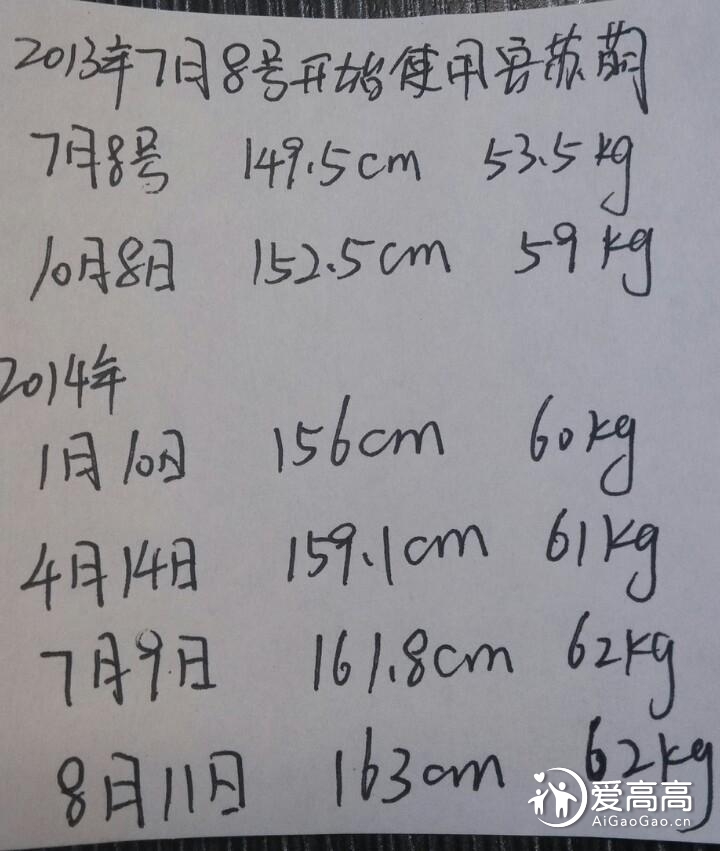 2013年7月8号开始使用安苏萌
7月8号 149.5cm 53.5kg
10月8日 152.5cm 59kg
2014年
1月10日 156cm 60kg
4月14日 159.1cm 61kg
7月9日 161.8cm 62kg
8月11日 163cm 62kg
爱高高
AiGaoGao.cn